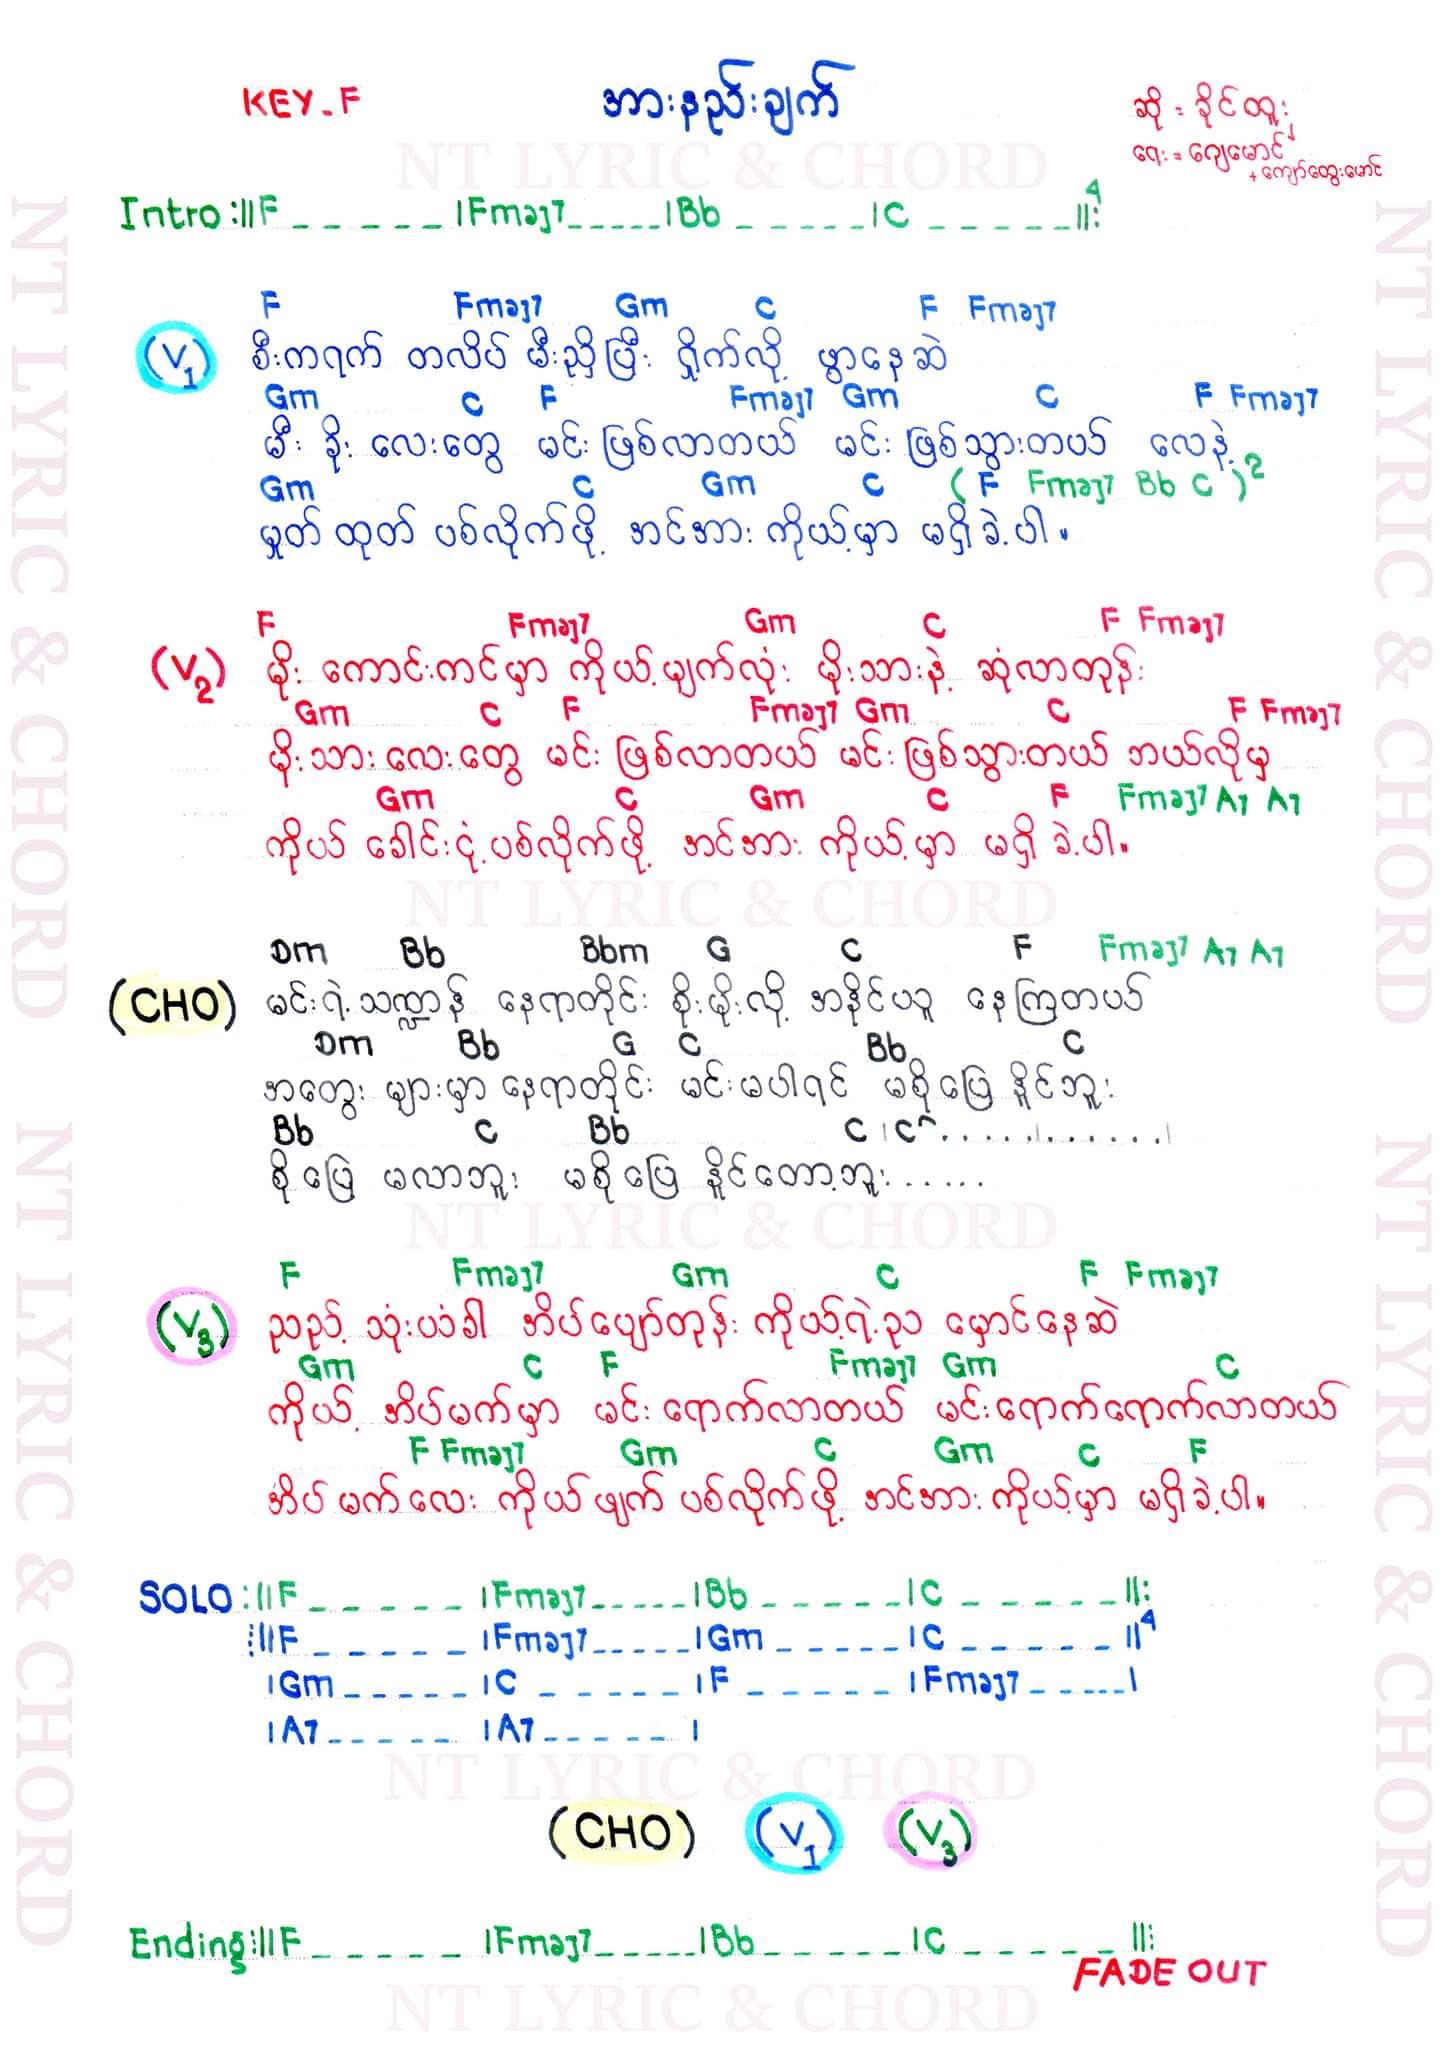 KEY-F
အားနည်းချက်
ဆို = ခိုင်ထူး
ရေး = ဂျေမောင်
+ ကျော်ထွေးမောင်
NT LYRIC & CHORD
Intro :||F _ _ _ _ _ |Fmaj7 _ _ _ _ _ |Bb _ _ _ _ _ |C _ _ _ _ _ ||:4
F Fmaj7 Gm C F Fmaj7
(V1) စီးကရက် တလိပ် မီးညှိပြီး ရှိုက်လို့ ဖွာနေဆဲ
Gm C F Fmaj7 Gm C F Fmaj7
မီး ခိုး လေးတွေ မင်း ဖြစ်လာတယ် မင်း ဖြစ်သွားတယ် လေနဲ့
Gm C Gm C ( F Fmaj7 Bb C )2
မှုတ် ထုတ် ပစ်လိုက်ဖို့ အင်အား ကိုယ့်မှာ မရှိခဲ့ပါ။
F Fmaj7 Gm C F Fmaj7
(V2) မိုး ကောင်းကင်မှာ ကိုယ့်မျက်လုံး မိုးသားနဲ့ ဆုံလာတုန်း
Gm C F Fmaj7 Gm C F Fmaj7
မိုးသားလေးတွေ မင်း ဖြစ်လာတယ် မင်း ဖြစ်သွားတယ် ဘယ်လိုမှ
Gm C Gm C F Fmaj7 A7 A7
ကိုယ် ခေါင်းငုံ့ပစ်လိုက်ဖို့ အင်အား ကိုယ့်မှာ မရှိခဲ့ပါ။
NT LYRIC & CHORD
Dm Bb Bbm G C F Fmaj7 A7 A7
(CHO) မင်းရဲ့သဏ္ဍာန် နေရာတိုင်း စိုးမိုးလို့ အနိုင်ယူ နေကြတယ်
Dm Bb G C Bb C
အတွေး များမှာ နေရာတိုင်း မင်းမပါရင် မစိုပြေ နိုင်ဘူး
Bb C Bb C |C^ . . . . . | . . . . . . |
စိုပြေ မလာဘူး မစိုပြေ နိုင်တော့ဘူး . . . . .
NT LYRIC & CHORD
F Fmaj7 Gm C F Fmaj7
(V3) ညည့် သုံးယံခါ အိပ်ပျော်တုန်း ကိုယ့်ရဲ့ည မှောင်နေဆဲ
Gm C F Fmaj7 Gm C
ကိုယ့် အိပ်မက်မှာ မင်း ရောက်လာတယ် မင်းရောက်ရောက်လာတယ်
F Fmaj7 Gm C Gm C F
အိပ် မက်လေး ကိုယ်ဖျက် ပစ်လိုက်ဖို့ အင်အား ကိုယ့်မှာ မရှိခဲ့ပါ။
SOLO :||F _ _ _ _ _ |Fmaj7 _ _ _ _ _ |Bb _ _ _ _ _ |C _ _ _ _ _ ||:
:||F _ _ _ _ _ |Fmaj7 _ _ _ _ _ |Gm _ _ _ _ _ |C _ _ _ _ _ ||4
|Gm _ _ _ _ _ |C _ _ _ _ _ |F _ _ _ _ _ |Fmaj7 _ _ _ _ _ |
|A7 _ _ _ _ _ |A7 _ _ _ _ _ |
NT LYRIC & CHORD
(CHO) (V1) (V3)
Ending :||F _ _ _ _ _ |Fmaj7 _ _ _ _ _ |Bb _ _ _ _ _ |C _ _ _ _ _ ||:
FADE OUT
NT LYRIC & CHORD
NT LYRIC & CHORD
NT LYRIC & CHORD
NT LYRIC & CHORD
NT LYRIC & CHORD